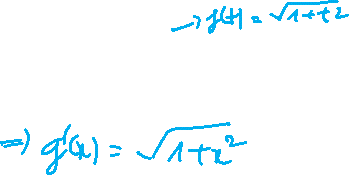 → f(t) = √(1+t2)
⇒ g'(x) = √(1+x²)